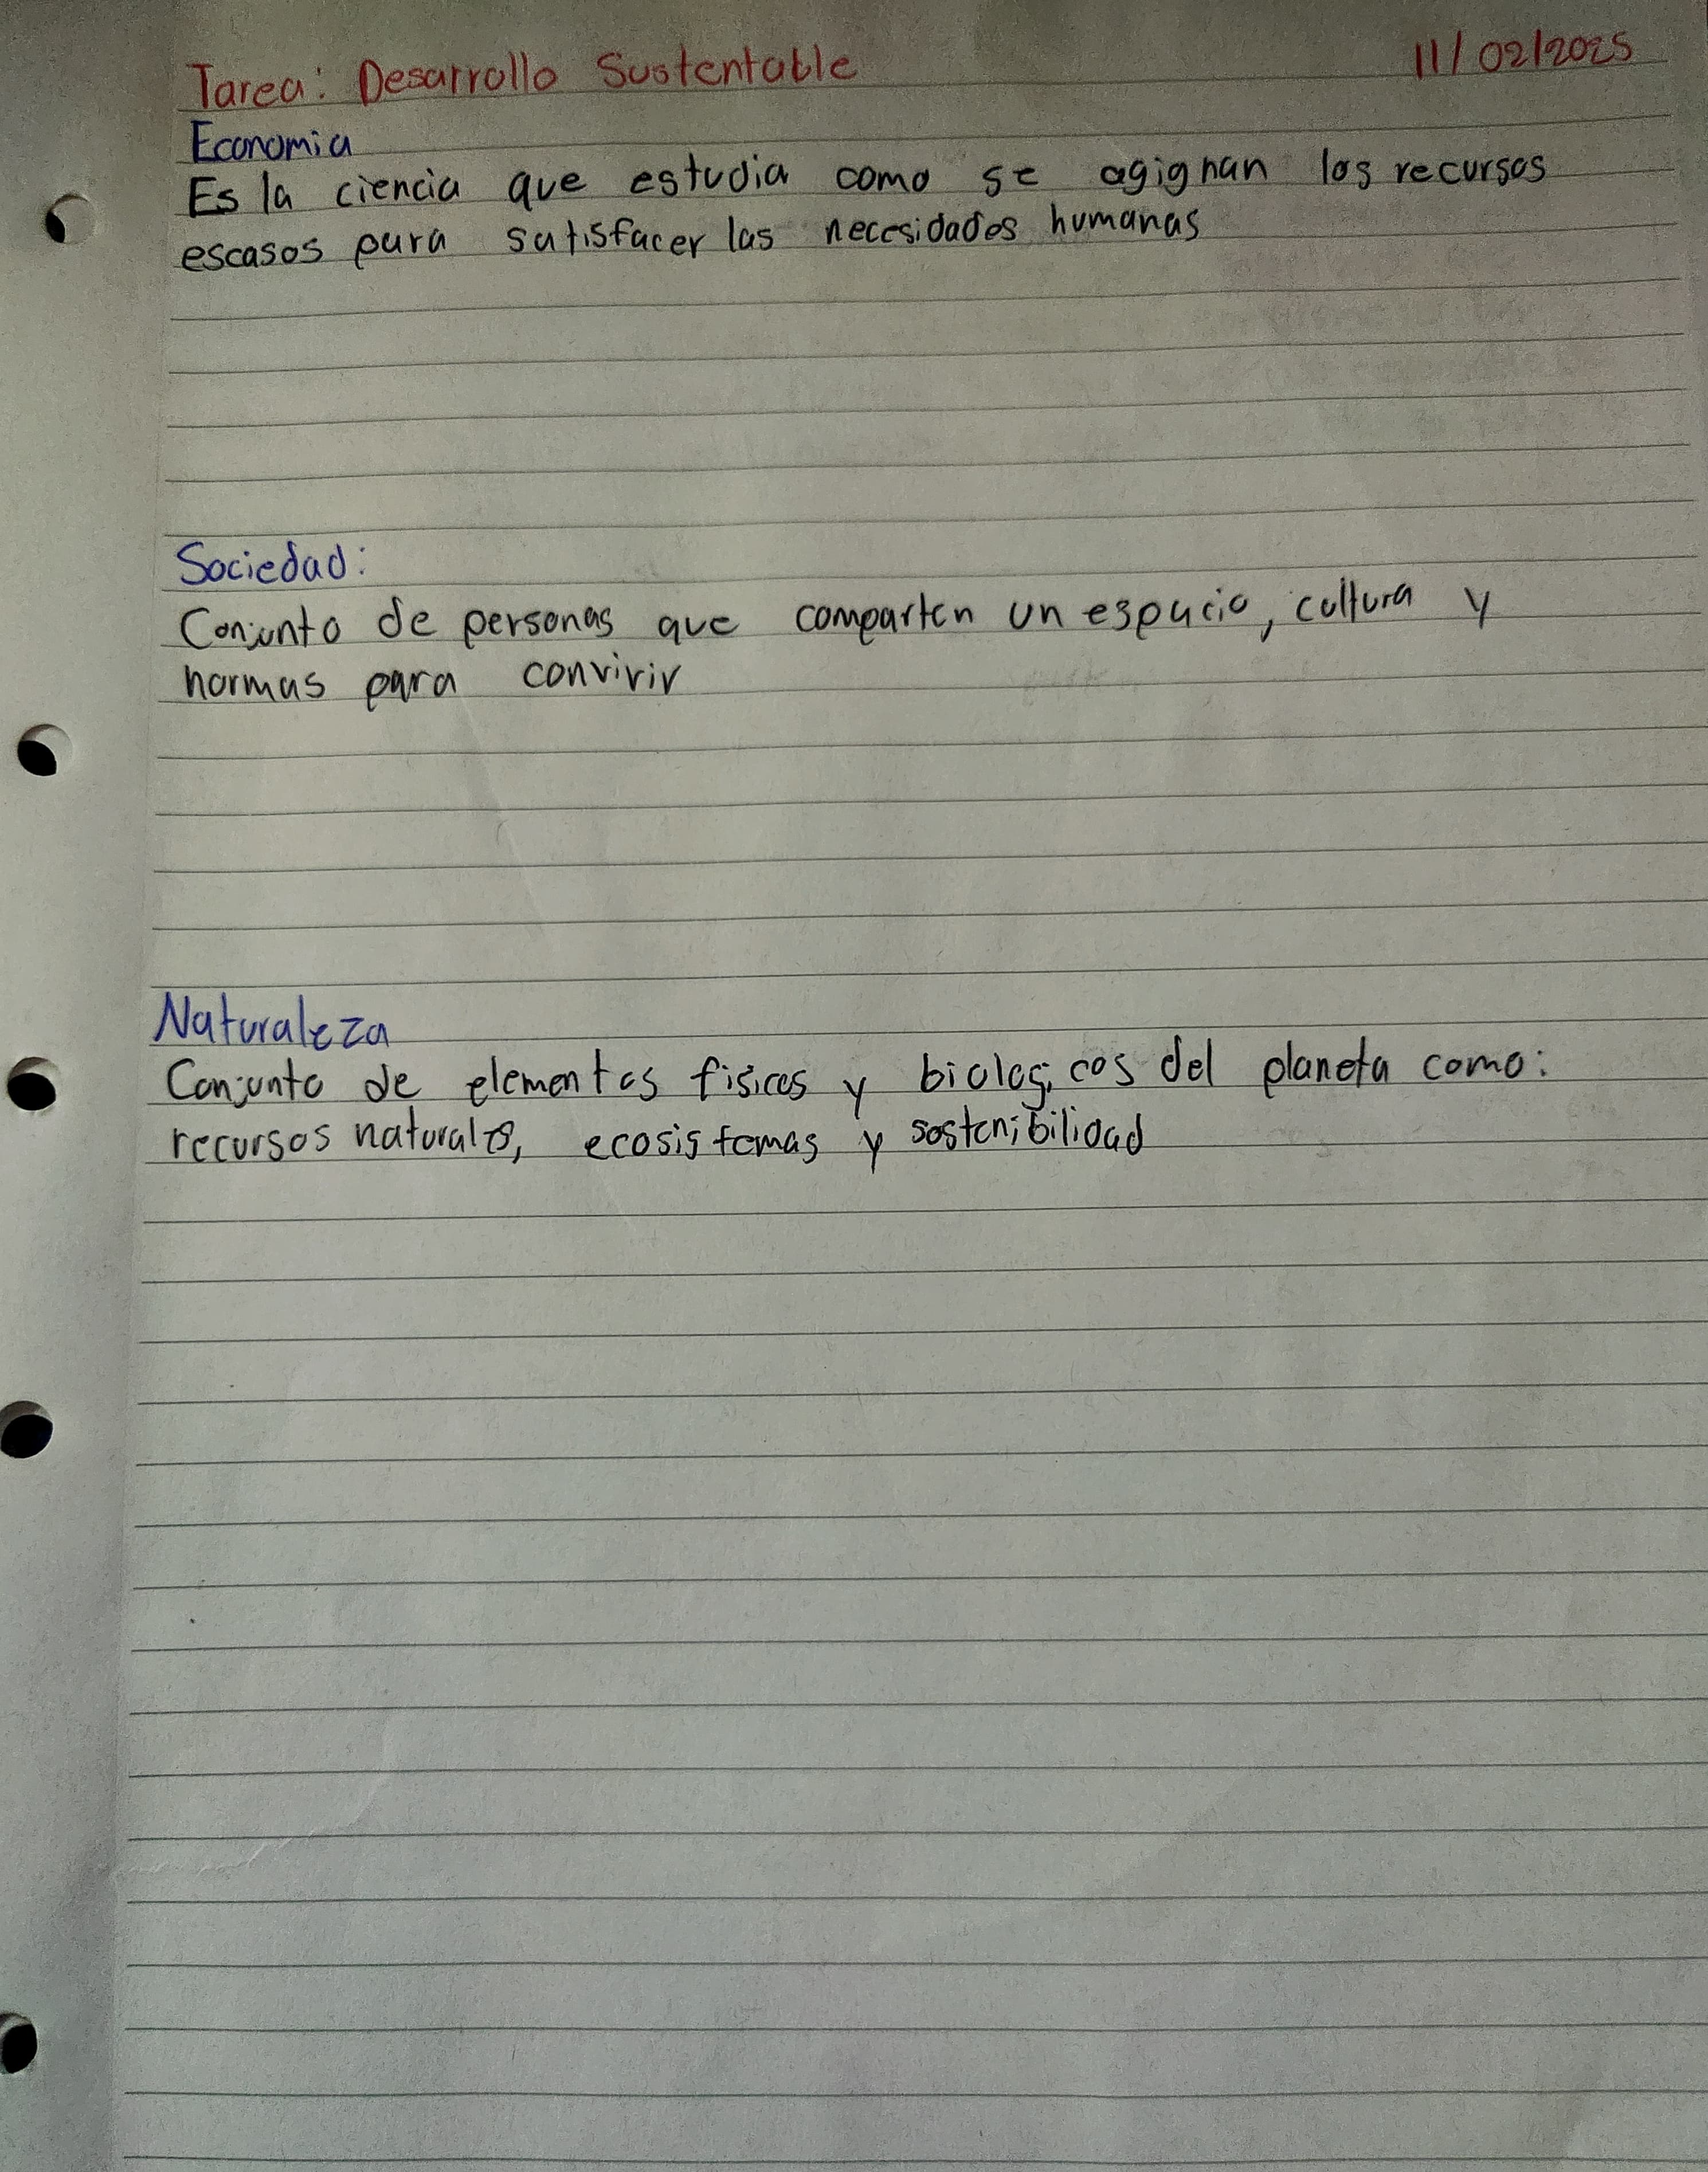 Tarea: Desarrollo Sustentable 11/02/2025
Economia
Es la ciencia que estudia como se asignan los recursos
escasos para satisfacer las necesidades humanas
Sociedad:
Conjunto de personas que comparten un espacio, cultura y
normas para convivir
Naturaleza
Conjunto de elementos fisicos y biologicos del planeta como:
recursos naturales, ecosistemas y sostenibilidad